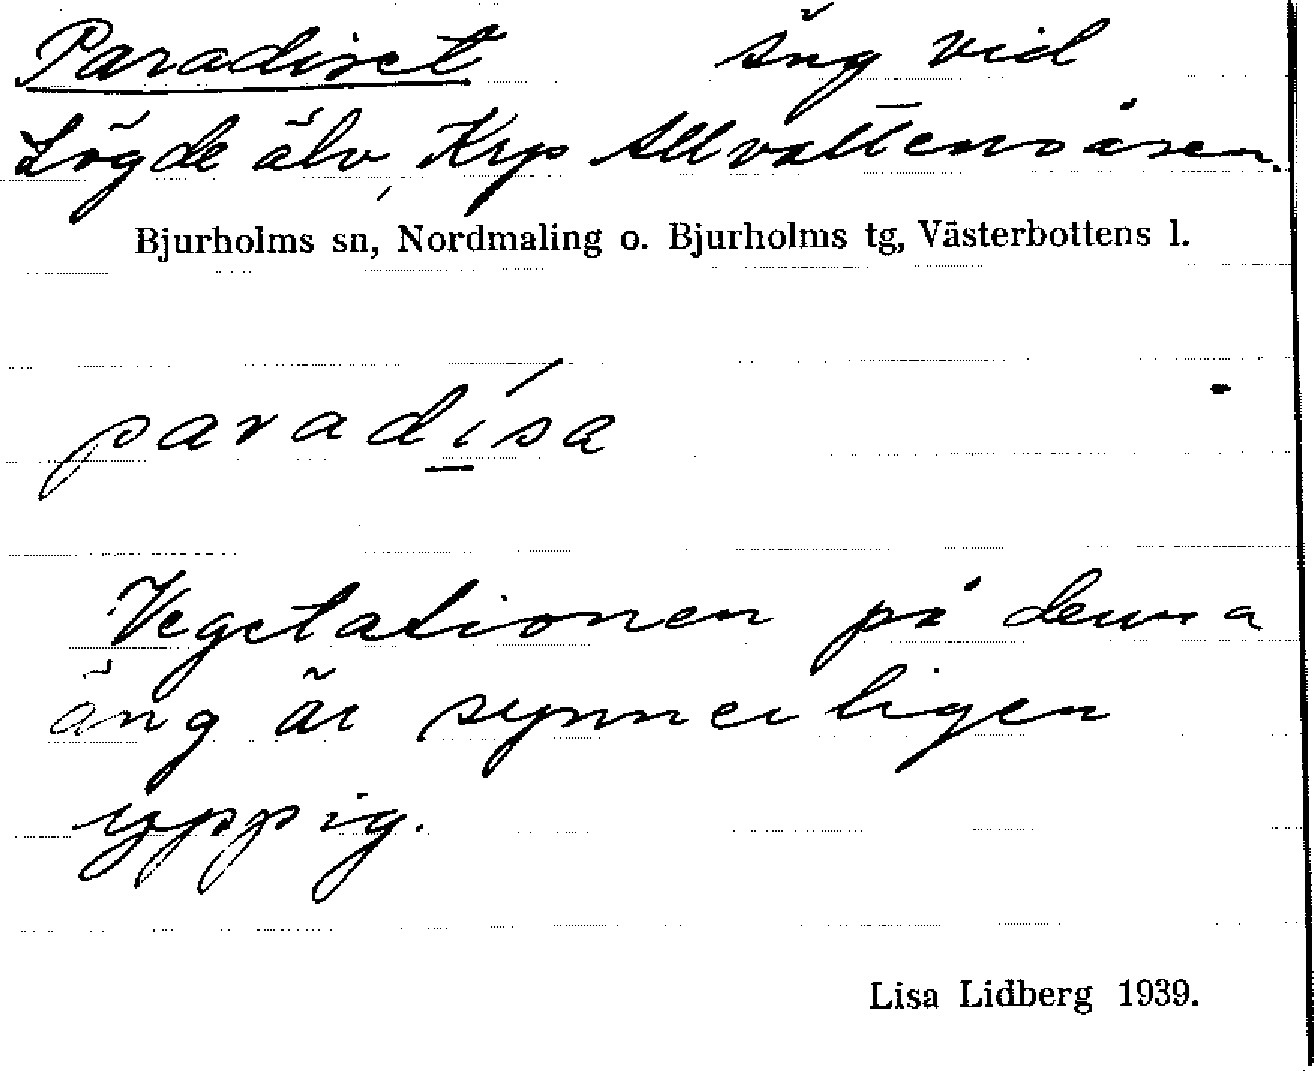 Paradiset äng vid
Lögde älv, Krp Allvattensåsen.
Bjurholms sn, Nordmaling o. Bjurholms tg, Västerbottens l.
paradísa
Vegetationen på denna
äng är synnerligen
yppig.
Lisa Lidberg 1939.